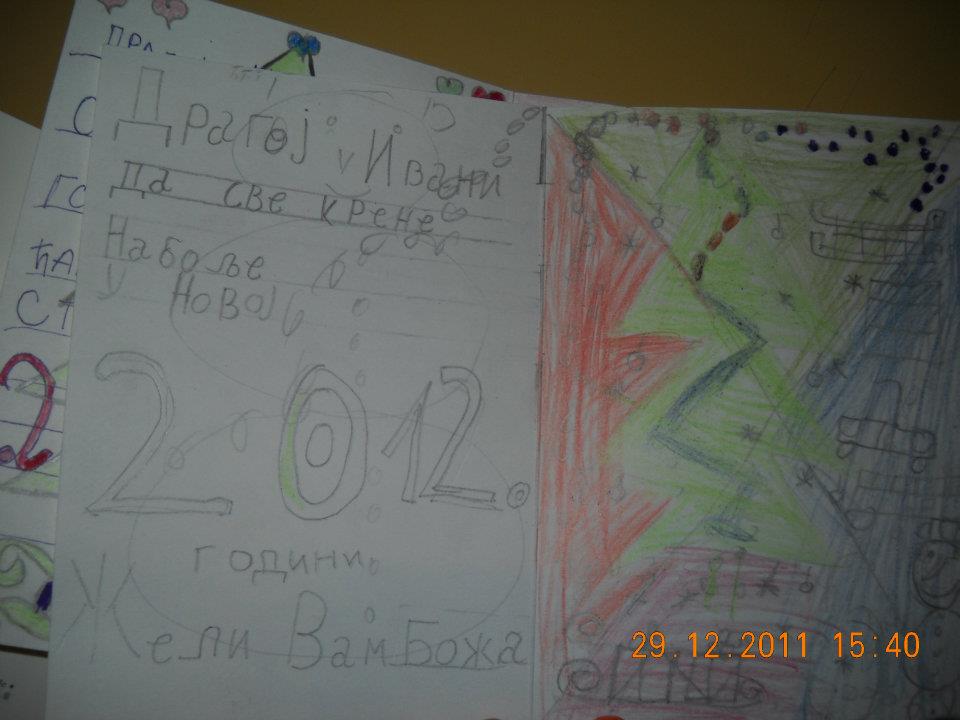 Драгој Ивани
Да све крене
На боље
у Новој
2012.
години.
Жели Вам Божа
29.12.2011 15:40